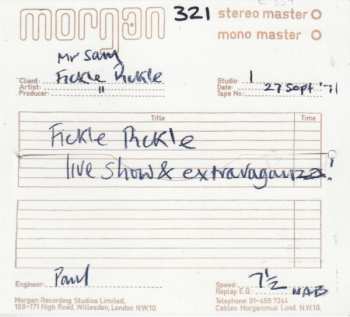 morgan 321 stereo master
mono master
Mr Sam
Client: Fickle Pickle Studio: 1
Artist: " Date: 27 Sept '71
Producer: Tape No.:
Title Time
Fickle Pickle
live show & extravaganza!
Engineer: Paul Speed: 7½
Replay E.Q. NAB
Morgan Recording Studios Limited, Telephone 01-459 7244
169-171 High Road, Willesden, London N.W.10. Cables Morganmus Lond. N.W.10.